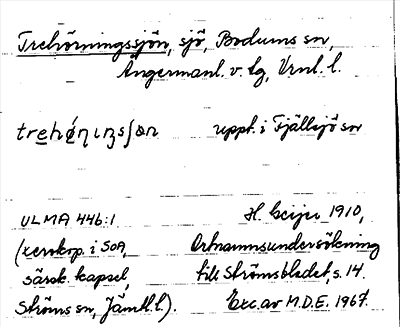 Trehörningssjön, sjö, Bodums sn,
Ångermanl. v. tg, Vrnl. l.
uppt. i Fjällsjö sn
ULMA 446:1 H. Geijer 1910,
(xerokop. i SOA, Ortnamnsundersökning
särsk. kapsel, till Strömsbladet, s. 14.
Ströms sn, Jämtl. l.). Exc. av M.D.E. 1967.